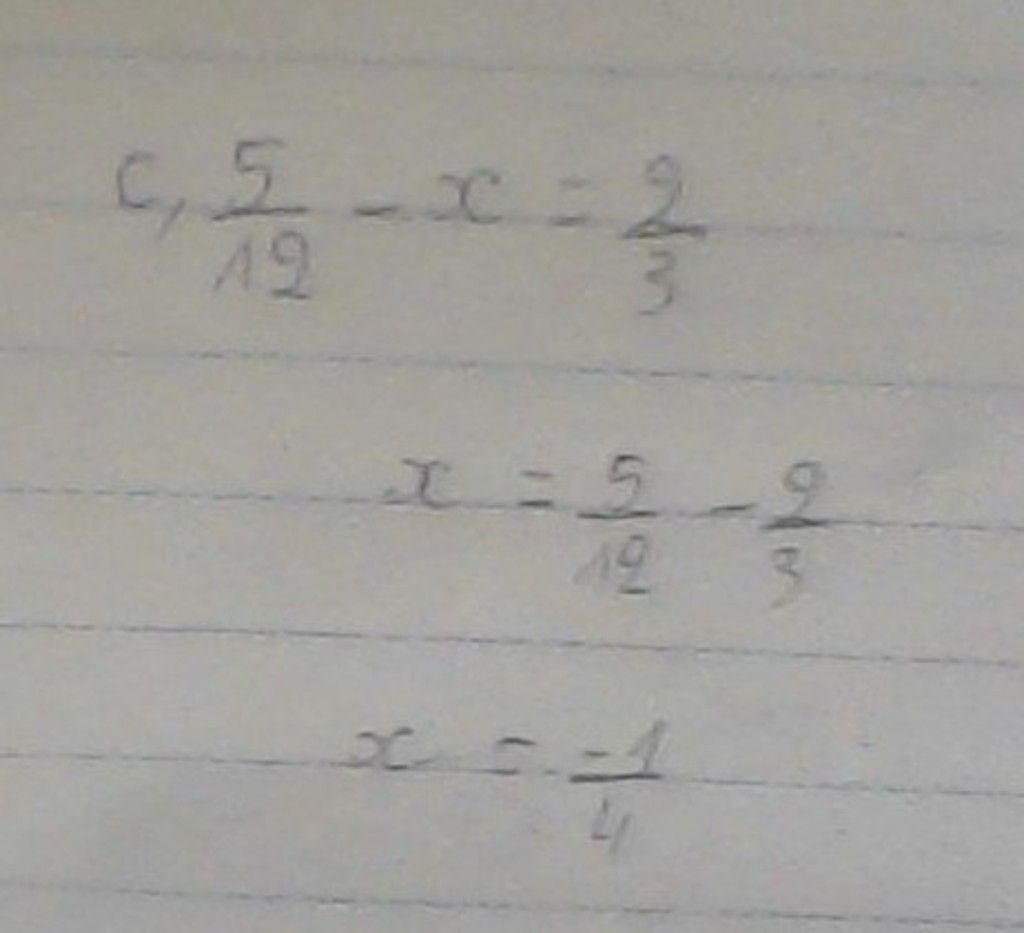 c, 5/12 - x = 2/3
x = 5/12 - 2/3
x = -1/4